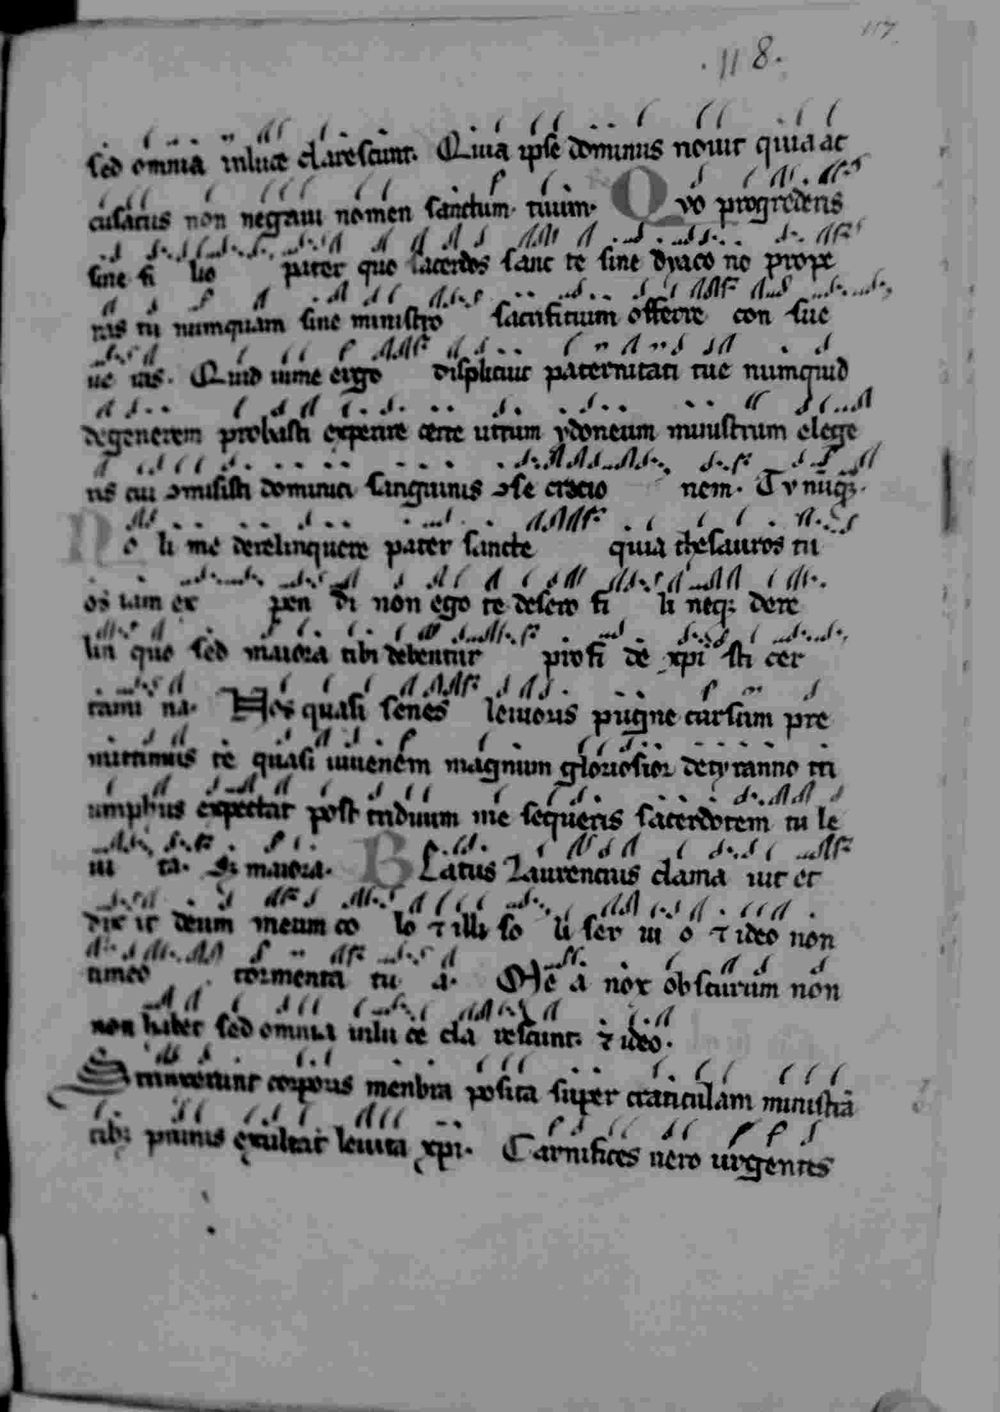 117
.118.
sed omnia inluce clarescunt. Quia ipse dominus novit quia ac
cusatus non negavi nomen sanctum tuum. Qvo progrederis
sine fi lio pater quo sacerdos sanc te sine dyaco no prope
ras tu numquam sine ministro sacrificium offerre con sue
ue ras. Quid in me ergo displicuit paternitati tue numquid
degenerem probasti experire certe utrum ydoneum ministrum elege
ris cui ɔmisisti dominici sanguinis ɔse cracio nem. Tv nuqȝ.
No li me derelinquere pater sancte quia thesauros tu
os iam ex pen di non ego te desero fi li neqȝ dere
lin quo sed maiora tibi debentur pro fi de xpi sti cer
tami na. Nos quasi senes levioris pugne cursum pre
mittimus te quasi iuvenem magnum gloriosior detyranno tri
umphus expectat post triduum me sequeris sacerdotem tu le
ui ta. Si maiora. BEatus Laurencius clama uit et
dix it deum meum co lo ⁊ illi so li ser ui o ⁊ ideo non
timeo tormenta tu a. Me a nox obscurum non
non habet sed omnia inlu ce cla rescunt. ⁊ ideo.
Strinxerunt corporis menbra posita super craticulam ministrā
tibȝ prunis exultat levita xpi. Carnifices vero urgentes